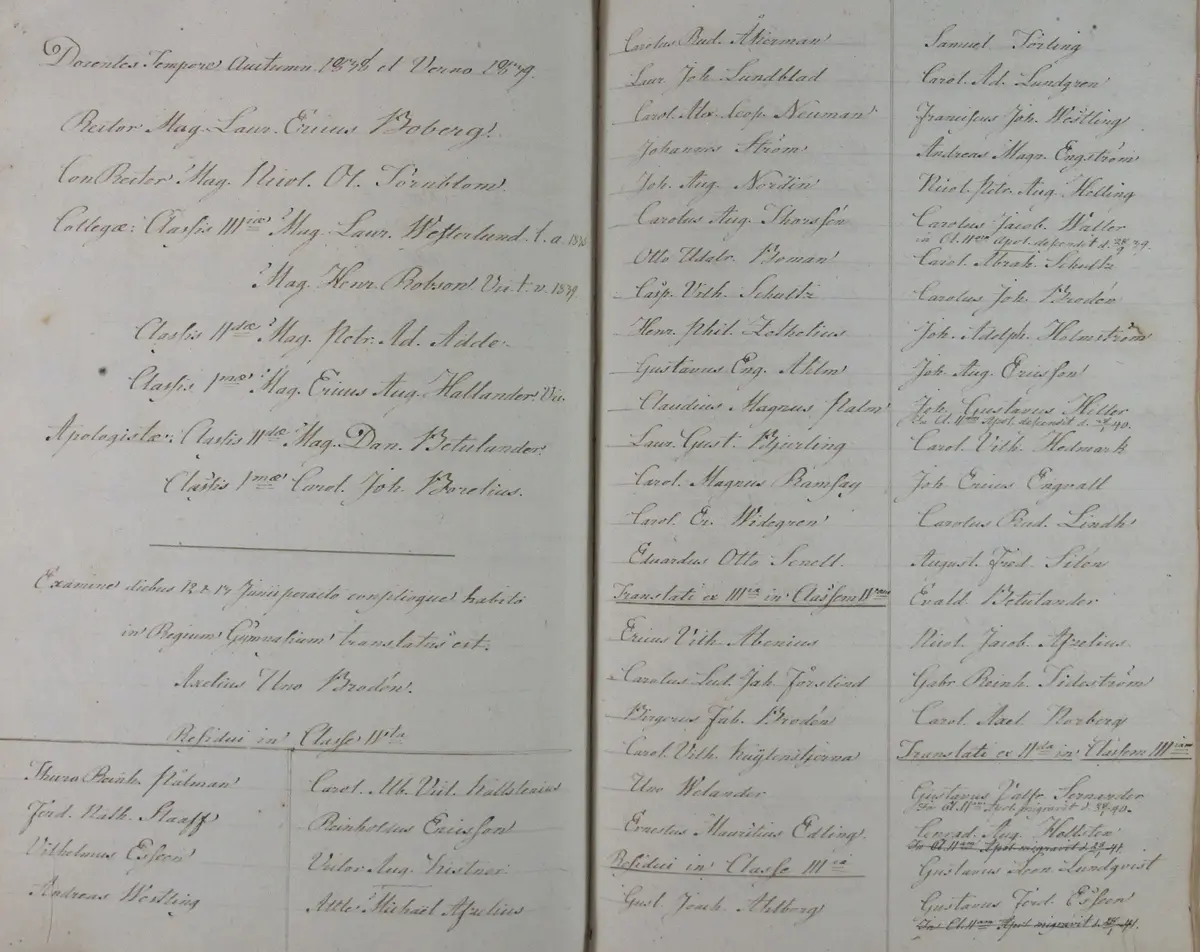 Docentes Tempore Auctumn. 1838 et Verno 1839.
Rector Mag. Laur. Ericus Boberg.
ConRector Mag. Nicol. Ol. Törnblom.
Collegæ: Classis IIIiæ Mag. Laur. Westerlund. t. a. 1838
Mag. Henr. Robson Vic. t. v. 1839.
Classis IIdæ Mag. Petr. Ad. Adde.
Classis Imæ Mag. Ericus Aug. Hallander. Vic.
Apologistæ: Classis IIdæ Mag. Dan. Betulander.
Classis Imæ Carol. Joh. Borelius.
Examine diebus 12 & 17 Junii peracto habito
in Regium Gymnasium translatus est.
Axelius Uno Brodén.
Residui in Classe
Thure Reinh. Pålman
Ferd. Nath. Staaff
Vilhelmus Essen
Andreas Westling
Carol. Alb. Vict. Kallstenius
Reinholdus Ericsson
Victor Aug. Kistner
Attle Michaël Afzelius
Carolus Rud. Åkerman
Laur. Joh. Lundblad
Carol. Alex. Leop. Neuman
Johannes Ström
Joh. Aug. Nordin
Carolus Aug. Thorssén
Otto Udalr. Boman
Casp. Vilh. Schultz
Henr. Phil. Zethelius
Gustavus Eng. Ahlm
Claudius Magnus Palm
Laur. Gust. Bjurling
Carol. Magnus Ramsay
Carol. Er. Widegren
Eduardus Otto Senell.
Translati ex IIIia in Classem
Ericus Vilh. Abenius
Carolus Lud. Joh. Förslind
Birgerus Joh. Brodén
Carol. Vilh. Kuylenstjerna
Uno Welander
Ernestus Mauritius Edling.
Residui in Classe IIIia
Gust. Joach. Ahlborg
Samuel Törling
Carol. Ad. Lundgren
Franciscus Joh. Westling
Andreas Magn. Engström
Nicol. Petr. Aug. Helling
Carolus Jacob. Waller
in Cl. IIam Apol. descendit d. 39.
Carol. Abrah. Schultz
Carolus Joh. Brodén
Joh. Adolph. Holmström
Joh. Aug. Ericsson
Joh. Gustavus Heller
In Cl. IIam Apol. descendit d. 40.
Carol. Vilh. Hedmark
Joh. Ericus Engvall
Carolus Rud. Lindh
August. Fred. Silén
Evald Betulander
Nicol. Jacob. Afzelius
Gabr. Reinh. Tideström
Carol. Axel. Norberg
Translati ex IIda in Classem IIIiam
Gustavus Valfr. Sernander
In Cl. IIam Apol. migravit d. 40.
Conrad. Aug. Hollsten
In Cl. IIam Apol. migravit d. 41.
Gustavus Lundqvist
Gustavus Ferd. Essen
In Cl. IIam Apol. migravit d. 41.